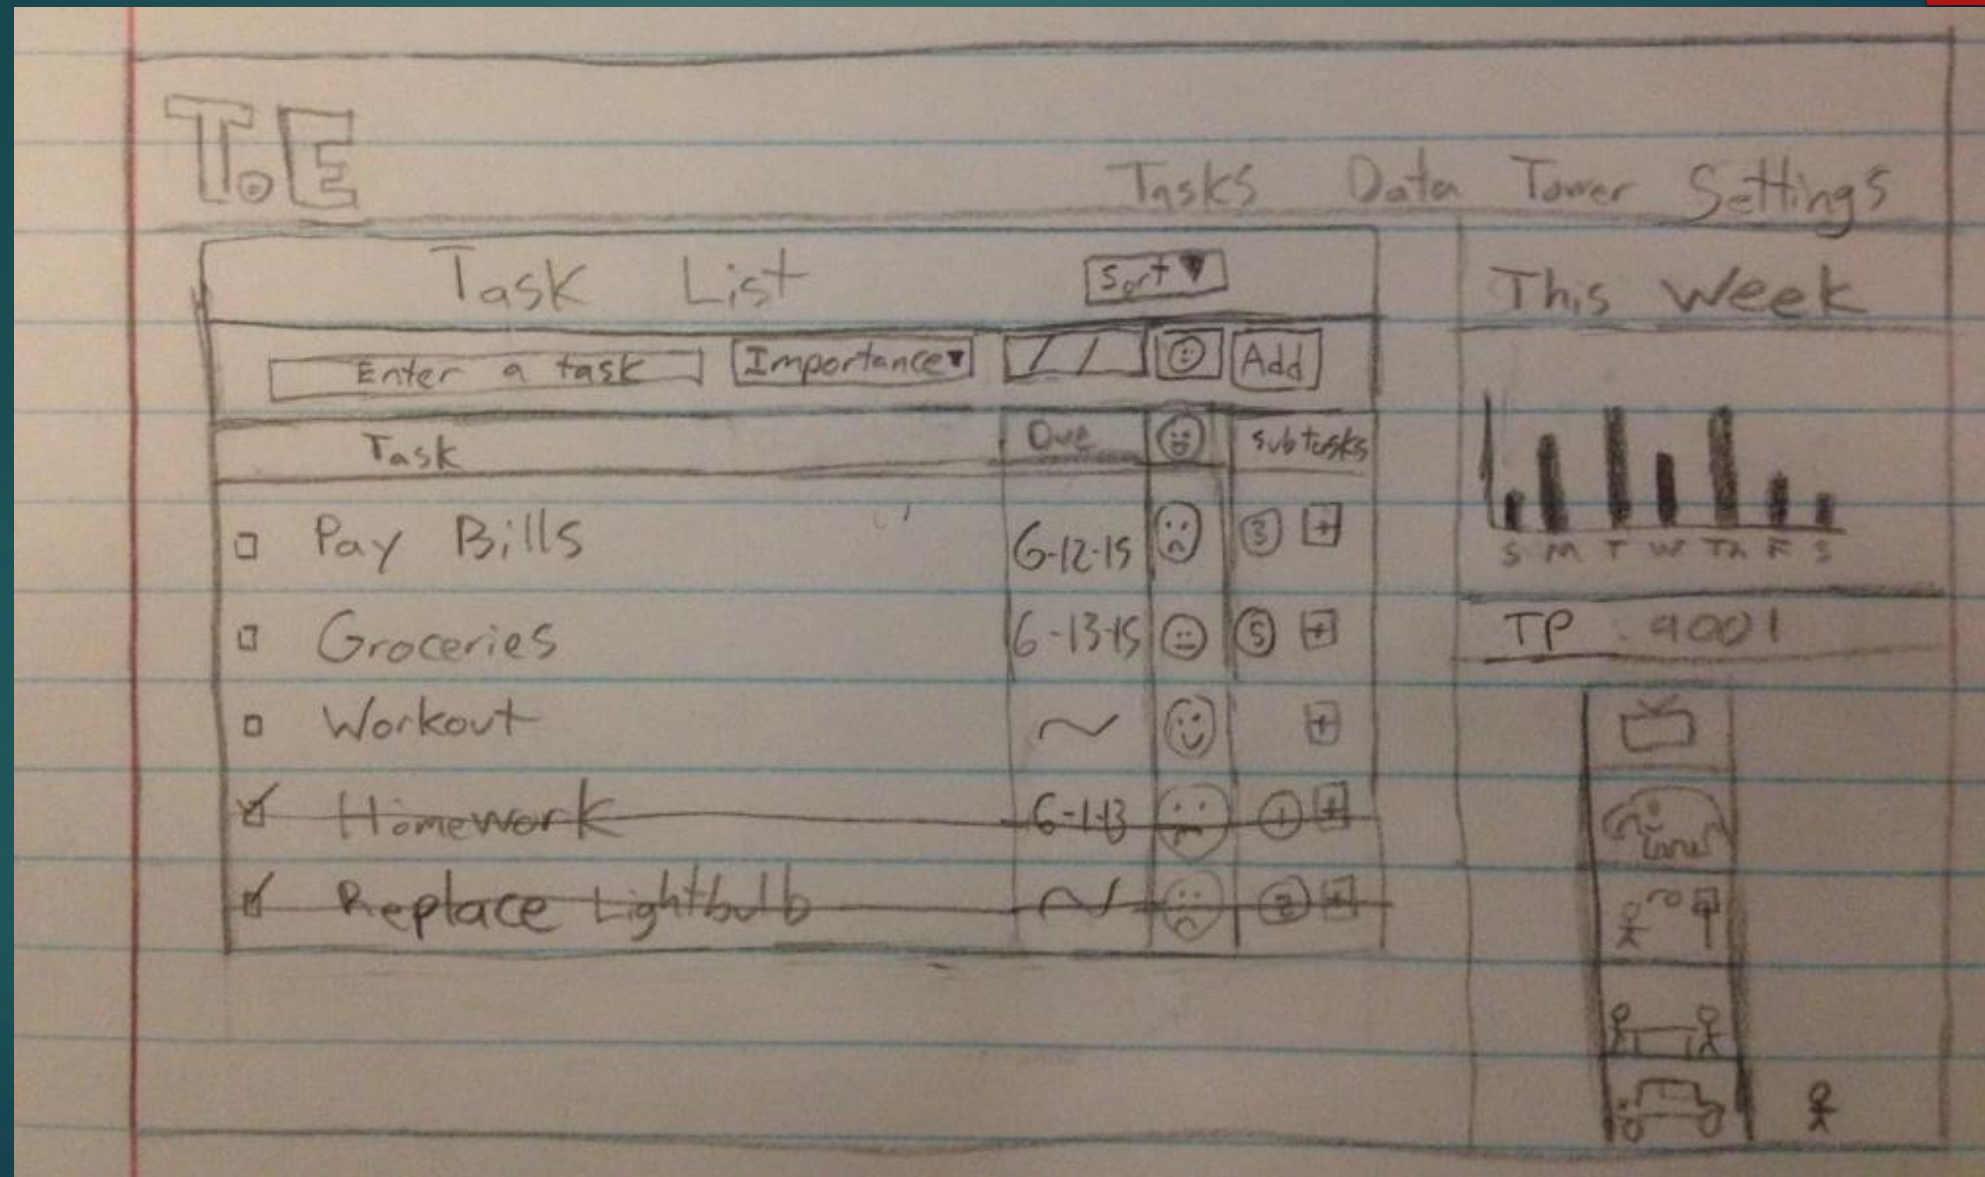 T.E
Tasks Data Tower Settings
Task List Sort ▼
Enter a task Importance ▼ / / Add
Task Due subtasks
Pay Bills 6-12-15 3 +
Groceries 6-13-15 5 +
Workout ~ +
Homework 6-1-13 1 +
Replace Lightbulb ~ 2 +
This Week
S M T W Th F S
TP : 9001